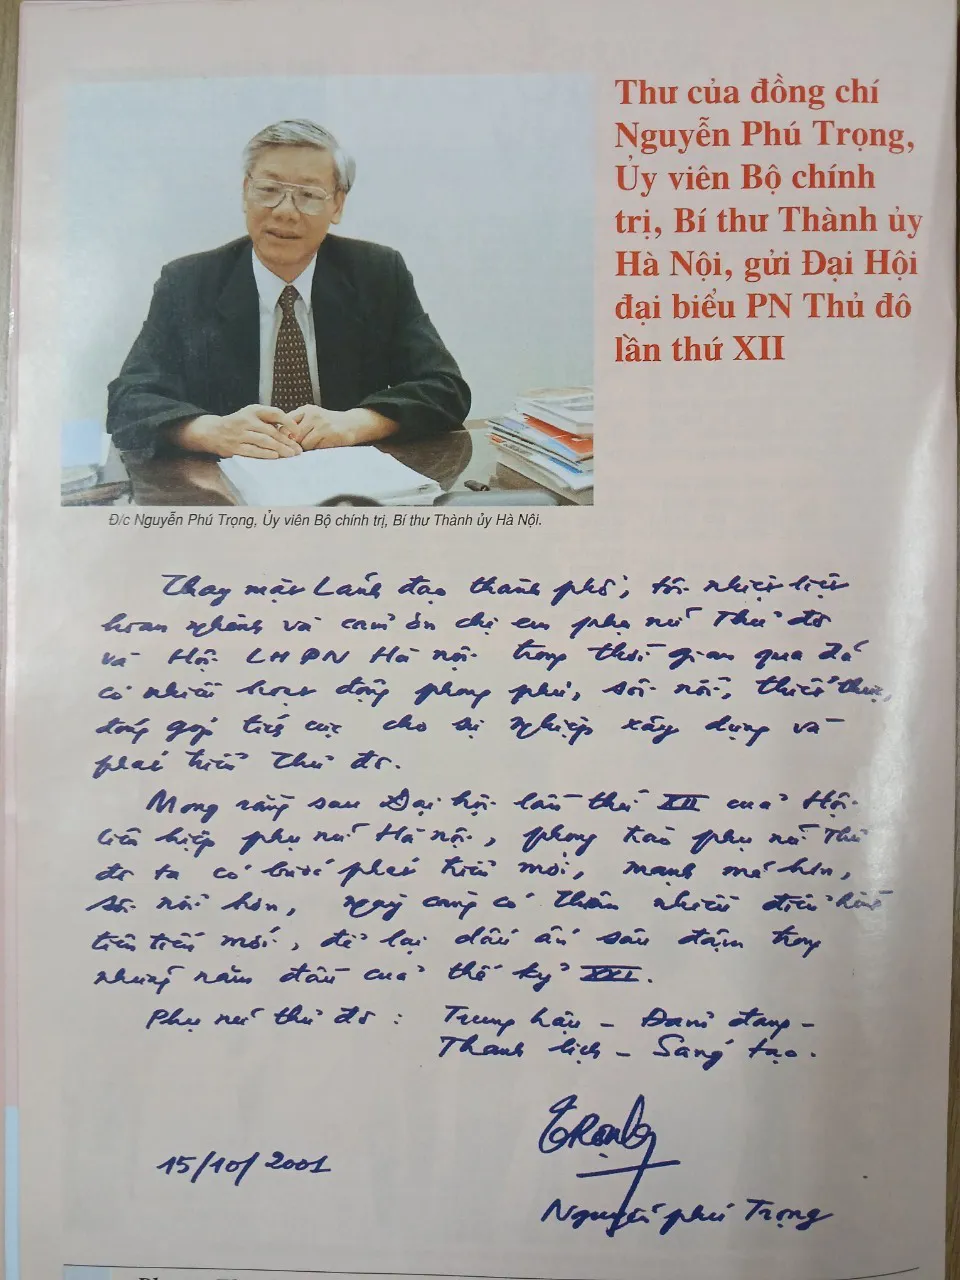 Thư của đồng chí
Nguyễn Phú Trọng,
Ủy viên Bộ chính
trị, Bí thư Thành ủy
Hà Nội, gửi Đại Hội
đại biểu PN Thủ đô
lần thứ XII
Đ/c Nguyễn Phú Trọng, Ủy viên Bộ chính trị, Bí thư Thành ủy Hà Nội.
Thay mặt Lãnh đạo thành phố, tôi nhiệt liệt
hoan nghênh và cảm ơn chị em phụ nữ Thủ đô
và Hội LHPN Hà Nội trong thời gian qua đã
có nhiều hoạt động phong phú, sôi nổi, thiết thực,
đóng góp tích cực cho sự nghiệp xây dựng và
phát triển Thủ đô.
Mong rằng sau Đại hội lần thứ XII của Hội
liên hiệp phụ nữ Hà Nội, phong trào phụ nữ Thủ
đô ta có bước phát triển mới, mạnh mẽ hơn,
sôi nổi hơn, ngày càng có thêm nhiều điển hình
tiên tiến mới, để lại dấu ấn sâu đậm trong
những năm đầu của thế kỷ XXI.
Phụ nữ thủ đô: Trung hậu - Đảm đang -
Thanh lịch - Sáng tạo.
15/10/2001
Trọng
Nguyễn phú Trọng